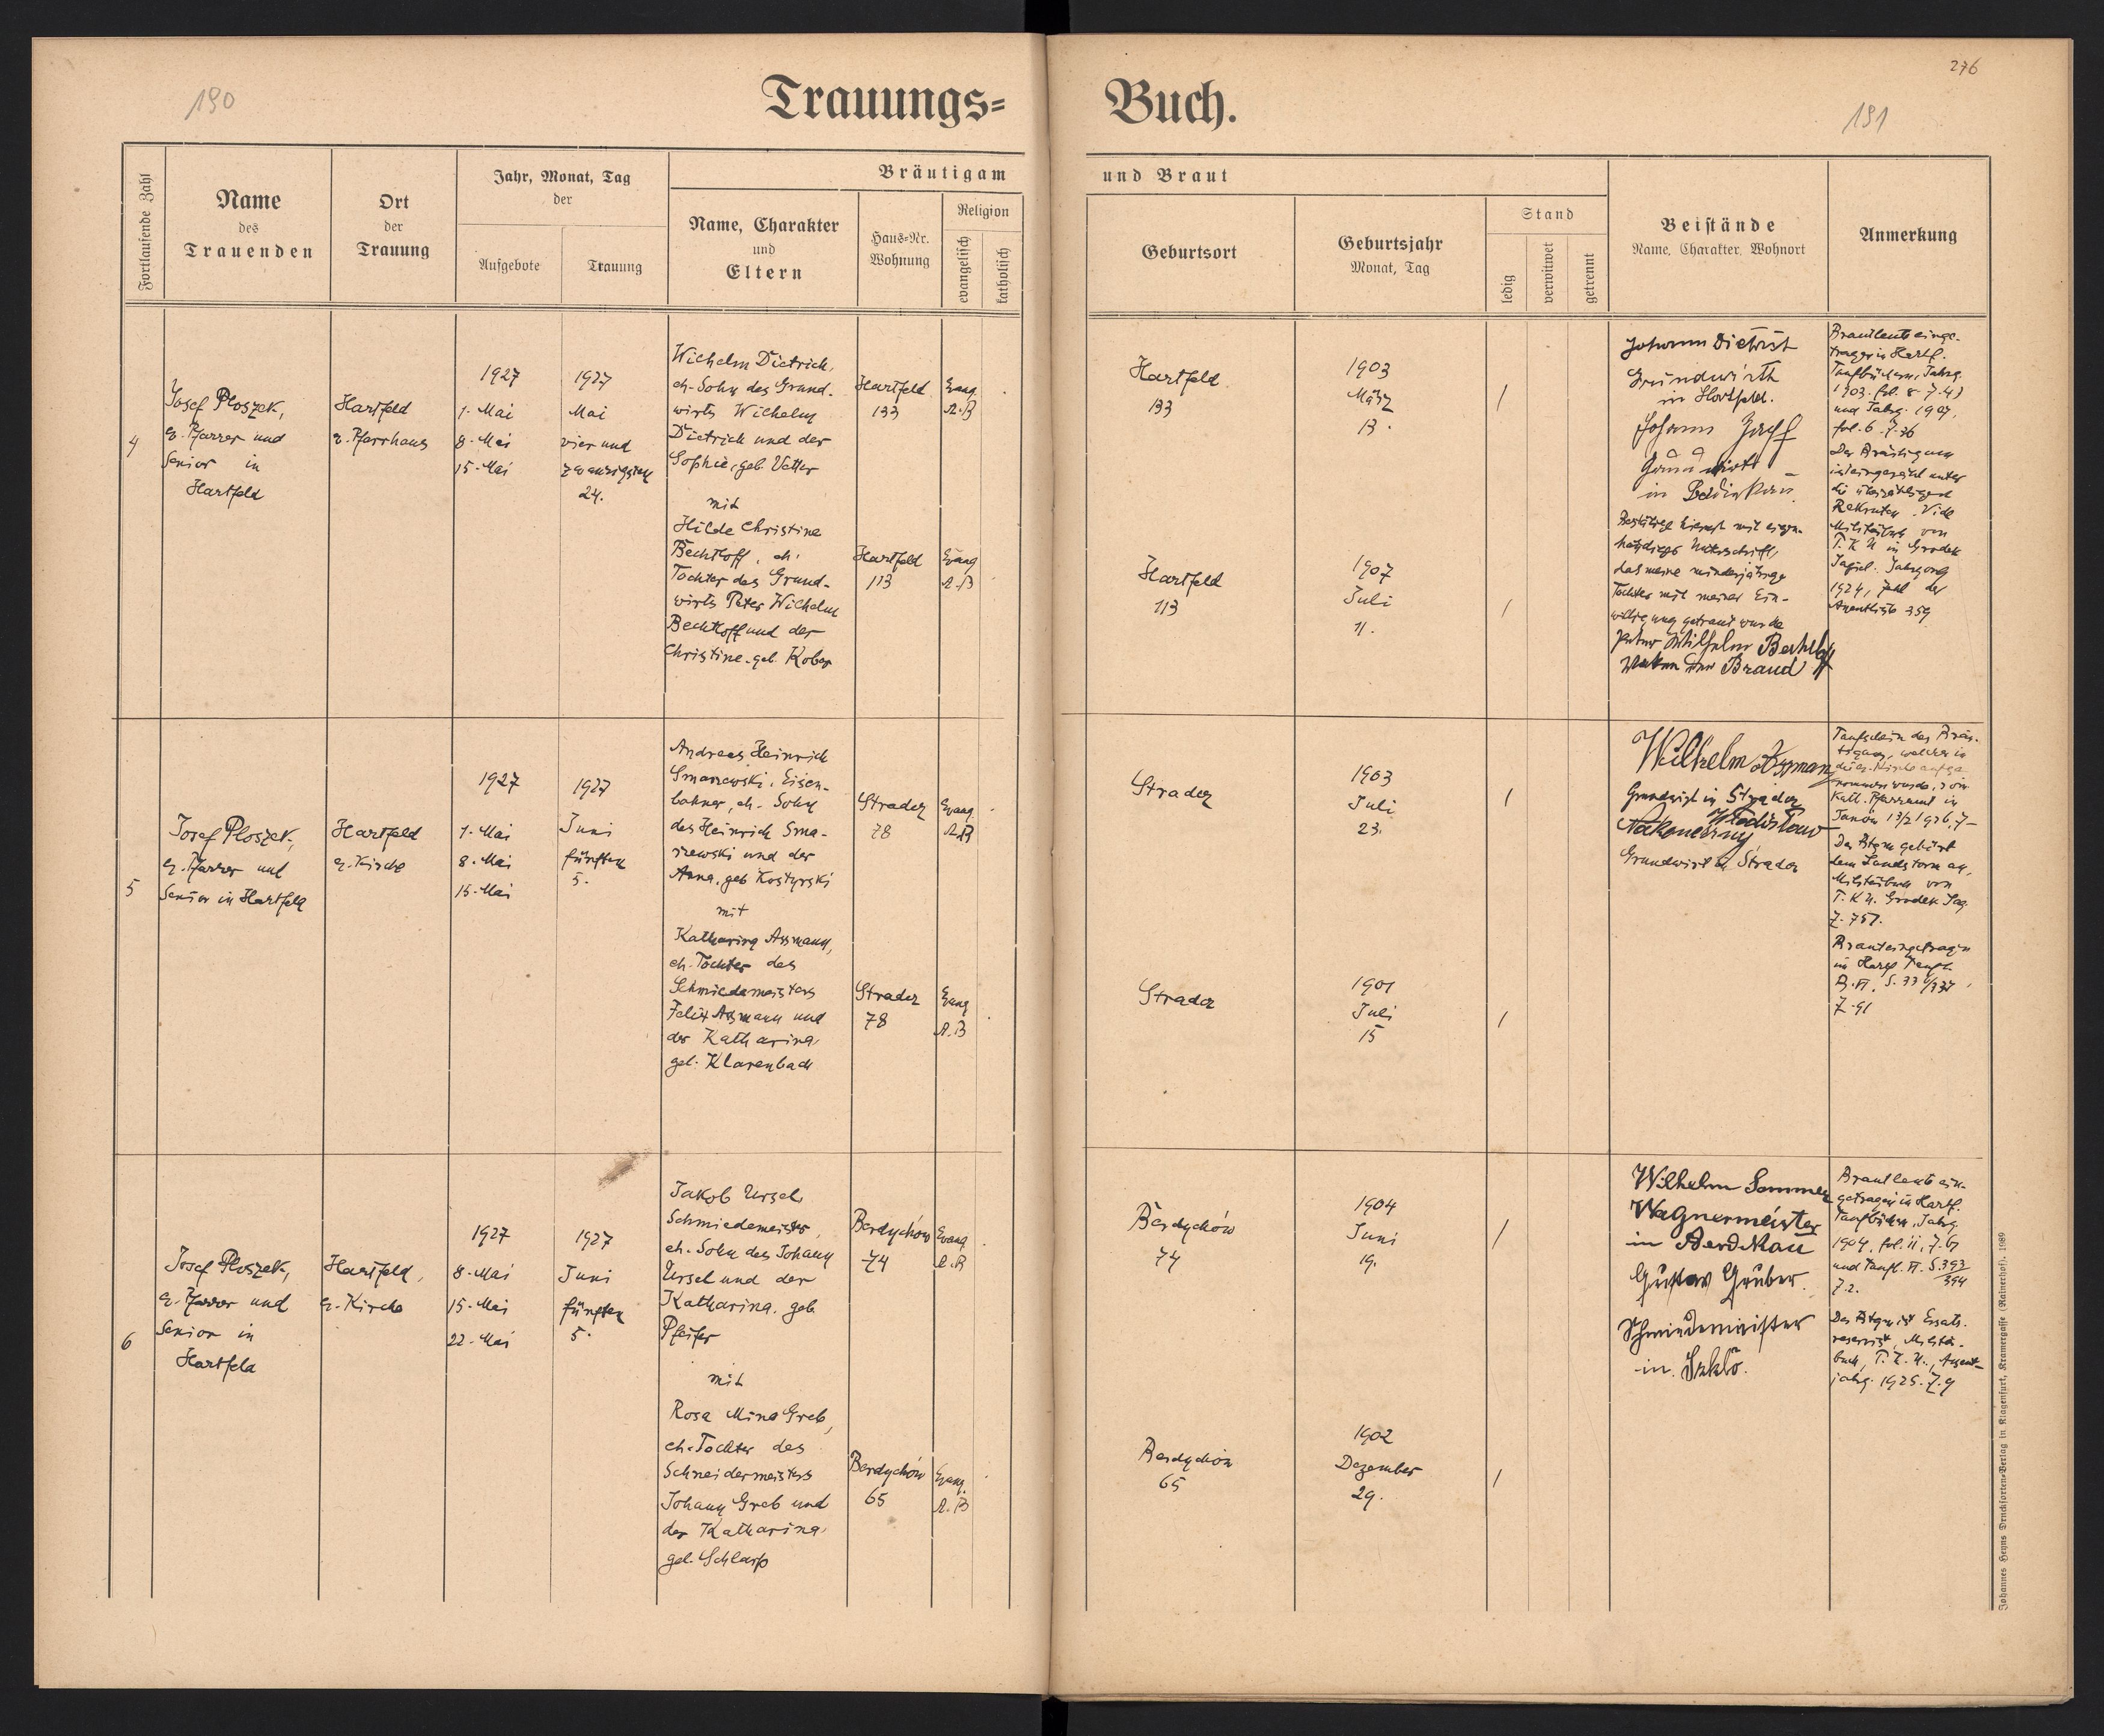 190
Trauungs=
Fortlaufende Zahl
Name
des
Trauenden
Ort
der
Trauung
Jahr, Monat, Tag
der
Aufgebote
Trauung
Bräutigam
Name, Charakter
und
Eltern
Haus=Nr.
Wohnung
Religion
evangelisch
katholisch
4
Josef Ploszek,
ev. Pfarrer und
Senior in
Hartfeld
Hartfeld
ev. Pfarrhaus
1927
1. Mai
8. Mai
15. Mai
1927
Mai
vier und
zwanzigsten
24.
Wilhelm Dietrich,
eh. Sohn des Grund-
wirts Wilhelm
Dietrich und der
Sophie, geb. Vetter
mit
Hilde Christine
Bechtloff, eh.
Tochter des Grund-
wirts Peter Wilhelm
Bechtloff und der
Christine. geb. Kober
Hartfeld
133
Evang
A.B
Hartfeld
113
Evang
A.B
5
Josef Ploszek,
ev. Pfarrer und
Senior in Hartfeld
Hartfeld
ev. Kirche
1927
1. Mai
8. Mai
15. Mai
1927
Juni
fünften
5.
Andreas Heinrich
Smarzewski, Eisen-
bahner, eh. Sohn
des Heinrich Sma-
rzewski und der
Anna, geb Kostyrski
mit
Katharina Assmann,
eh. Tochter des
Schmiedemeisters
Felix Assmann und
der Katharina,
geb. Klarenbach
Stradez
78
Evang.
A.B
Stradez
78
Evang
A.B
6
Josef Ploszek,
ev. Pfarrer und
Senior in
Hartfeld
Hartfeld,
ev. Kirche
1927
8. Mai
15. Mai
22. Mai
1927
Juni
fünften
5.
Jakob Ursel,
Schmiedemeister,
eh. Sohn des Johann
Ursel und der
Katharina. geb
Pfeifer
mit
Rosa Mina Greb,
eh. Tochter des
Schneidermeisters
Johann Greb und
der Katharina,
geb. Schlarp
Berdychów
74
Evang
A.B
Berdychów
65
Evang.
A.B
276
Buch.
191
und Braut
Geburtsort
Geburtsjahr
Monat, Tag
Stand
ledig
verwitwet
getrennt
Beistände
Name, Charakter, Wohnort
Anmerkung
Hartfeld
133
1903
März
13.
/
Hartfeld
113
1907
Juli
11.
/
Johann Dietrich
Grundwirth
in Hartfeld.
Johann
Grundwirth
in
Bestätige hiermit mit eigen-
händiger Unterschrift,
das meine minderjährige
Tochter mit meiner Ein-
willigung getraut wurde
Peter Wilhelm Bechtloff
Vater der Braud
Brautleute einge-
tragen in Hartf.
Taufbüchern, Jahrg.
1903. fol. 8
und Jahrg. 1907,
fol. 6
Der Bräutigam
ist eingereiht unter
die überzähligen
Rekruten. Vide
Militärbuch von
P.K.U in Grodek
Jagiel. Jahrgang
1924, Zahl der
359
Stradez
1903
Juli
23.
/
Stradcz
1901
Juli
15
/
Wilhelm Assmann
Grundwirt in Stradez
Władisław
Grundwirt in Stradez
Taufschein des Bräu-
tigams, welcher in
die ev. Kirche aufge
nommen wurde, vom
Kath. Pfarramt in
Janów
Der Btgm gehört
dem Landsturm an,
Militärbuch von
P.K.U. Grodek Jag.
Z. 757.
Braut eingetragen
in Hartf Taufb.
Z. 91
Berdychów
74
1904
Juni
19.
/
Berdychów
65
1902
Dezember
29.
/
Wilhelm Sommer
Wagnermeister
in Berdikau
Gustav Gruber
Schmiedemeister
in
Brautleute ein-
getragen in Hartf.
Taufbüchern, Jahrg.
1904, fol. 11, Z. 67
und Taufb. VI. S. 393/394
Z. 2.
Der Btgm ist Ersatz-
reservist, Militär-
buch, P.K.U.,
jahrg. 1925. Z. 9
Johannes Heyns Drucksorten=Verlag in Klagenfurt, Kramergasse (Rainerhof). 1989